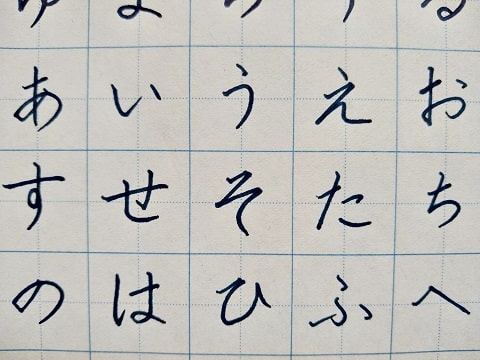 あいうえお
すせそたち
のはひふへ